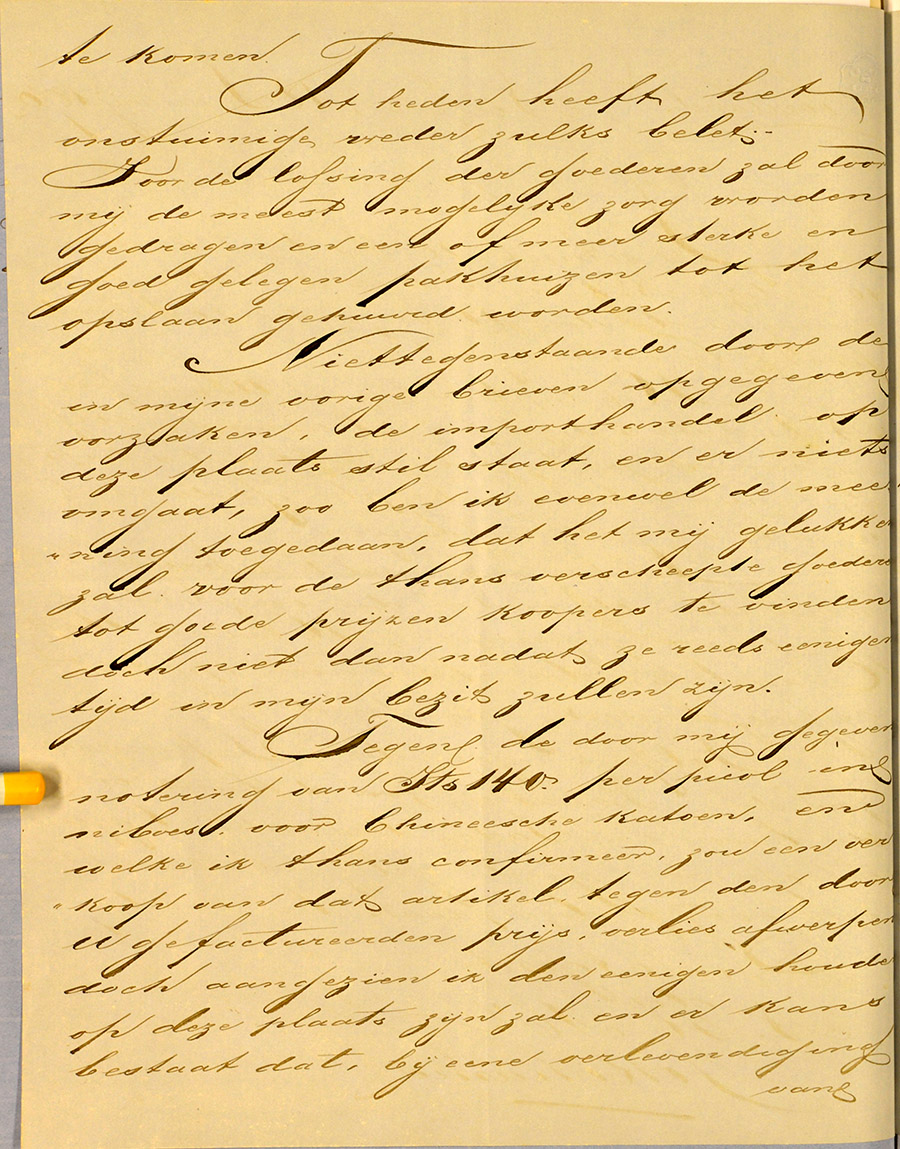 te komen.
Tot heden heeft het
onstuimige weder zulks belet.-
Voor de lossing der goederen zal door
mij de meest mogelyke zorg worden
gedragen en een of meer sterke en
goed gelegen pakhuizen tot het
opslaan gehuurd worden.
Niettegenstaande door de
in mijne vorige brieven opgegeven
oorzaken, de importhandel op
deze plaats stil staat, en er niets
omgaat, zoo ben ik evenwel de mee
"ning toegedaan, dat het mij gelukken
zal voor de thans verscheepte goederen
tot goede prijzen koopers te vinden
doch niet dan nadat ze reeds eenigen
tijd in mijn bezit zullen zijn.
Tegen de door mij gegeven
notering van 140 per picol in
niboes voor Chineesche katoen, en
welke ik thans confirmeer, zou een ver
"koop van dat artikel tegen den door
U gefactureerden prijs, verlies afwerpen
doch aangezien ik den eenigen houder
op deze plaats zyn zal en er kans
bestaat dat, bij eene verlevendiging
van